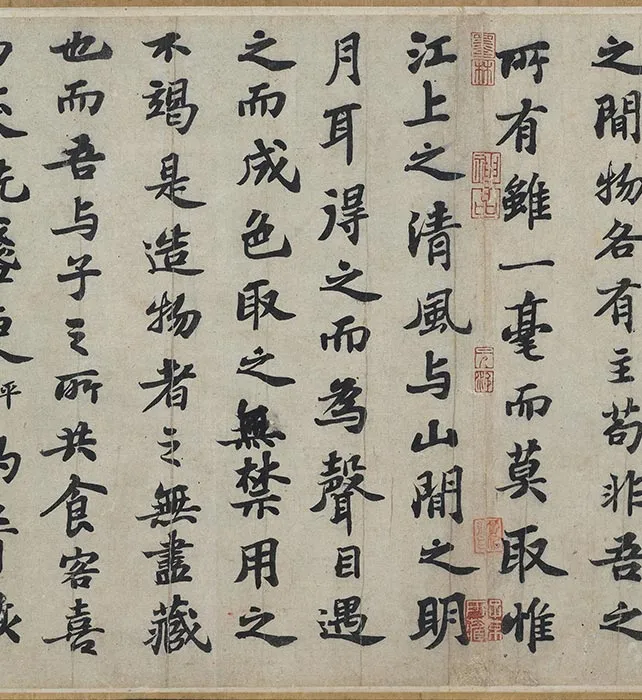 之閒物各有主苟非吾之
所有雖一毫而莫取惟
江上之清風与山閒之明
月耳得之而為聲目遇
之而成色取之無禁用之
不竭是造物者之無盡藏
也而吾与子之所共食客喜
笑洗盞更平
墨林
神品